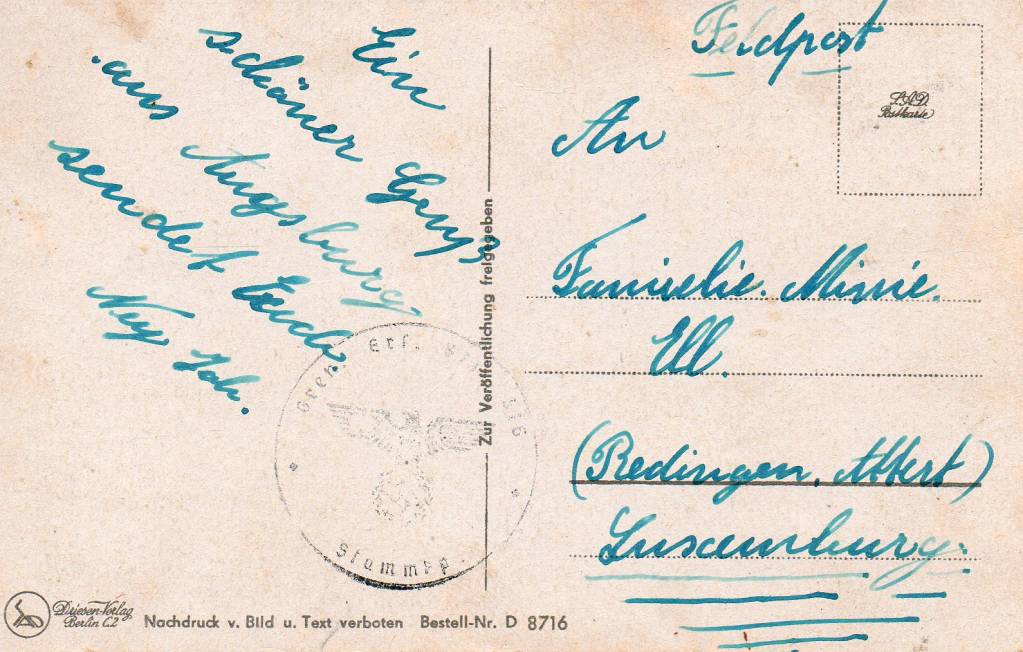 Ein
schöner Gruß
aus Augsburg
sendet Euch.
Ney Joh.
Feldpost
L.A.D.
Postkarte
An
Familie. Minie.
Ell.
(Redingen, Attert)
Luxemburg.
Zur Veröffentlichung freigegeben
Gren. Ers.
316
Stammkp
Driesen-Verlag
Berlin C2
Nachdruck v. Bild u. Text verboten Bestell-Nr. D 8716